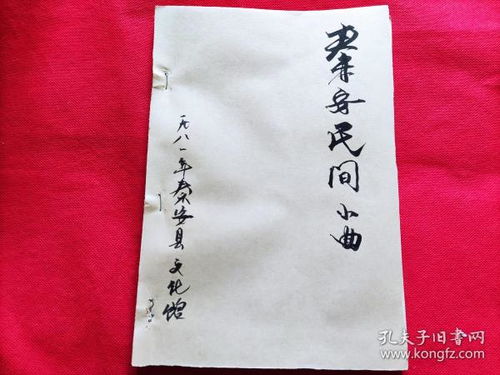 秦安民间小曲
一九八一年秦安县文化馆
孔夫子旧书网
www.kongfz.com